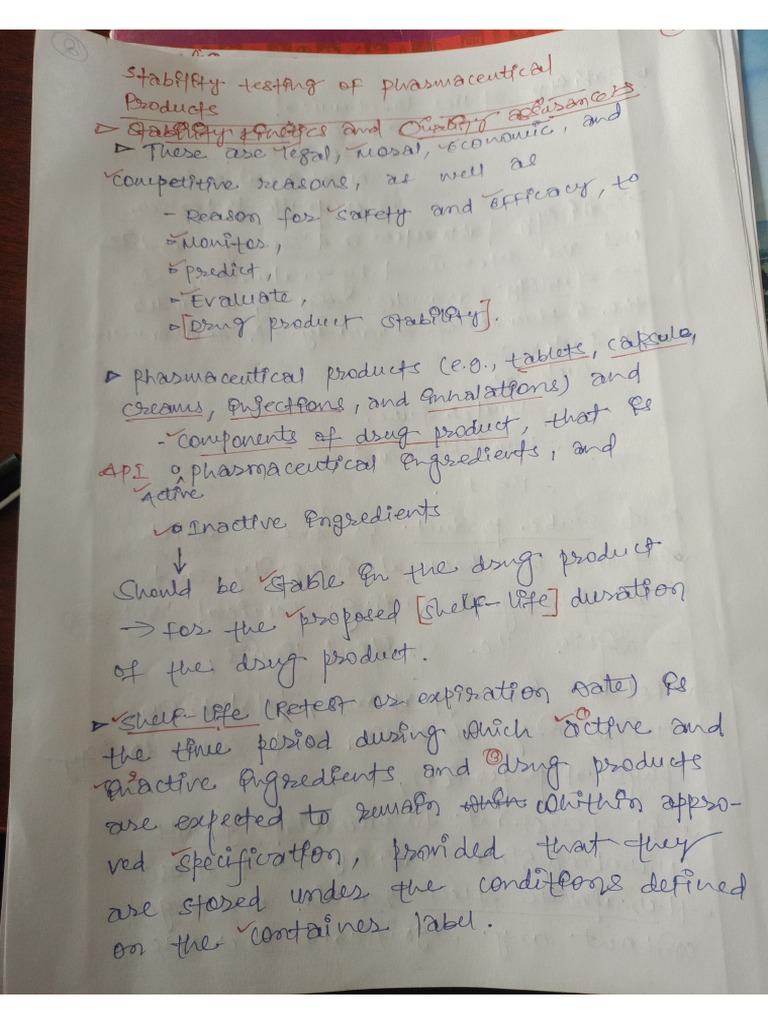 8
Stability testing of pharmaceutical
Products
▷ Stability kinetics and Quality assurance
▷ These are legal, Moral, Economic, and
competitive reasons, as well as
- Reason for safety and efficacy, to
Monitor,
predict,
Evaluate,
[Drug product stability].
▷ pharmaceutical products (e.g., tablets, capsule,
creams, injections, and inhalations) and
- components of drug product, that is
API o pharmaceutical ingredients, and
^ Active
o Inactive ingredients
↓
Should be stable in the drug product
→ for the proposed [shelf-life] duration
of the drug product.
▷ Shelf-life (Retest or expiration date) is
the time period during which ① active and
② inactive ingredients and ③ drug products
are expected to remain whithin appro-
ved specification, provided that they
are stored under the conditions defined
on the container label.